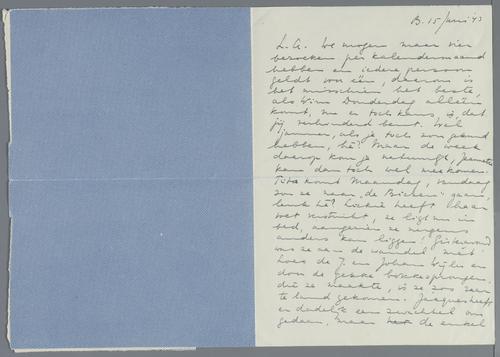 B. 15 Juni '43
L.G. We mogen maar vier
bezoeken per kalendermaand
hebben en iedere persoon
geldt voor één, daarom is
het misschien het beste
als Wim Donderdag alleen
komt, nu er toch kans is, dat
jij verhinderd bent. Wel
jammer, als je toch zou
hebben, hè? Maar de week
daarop kom je natuurlijk,
kan dan toch wel meekomen.
Tita komt Maandag, vandaag
zou ze naar „de Bicken" gaan,
leuk hè? heeft haar
voet verstuikt, ze ligt nu in
bed, aangezien ze nergens
anders kan liggen! Gisteravond
was ze aan de wandel met
Loes de J. en Johan Wijler en
door de gekke bokkesprongen,
die ze maakte, is ze zoo
te land gekomen. Jacques heeft
er dadelijk een zwachtel om
gedaan, maar de enkel